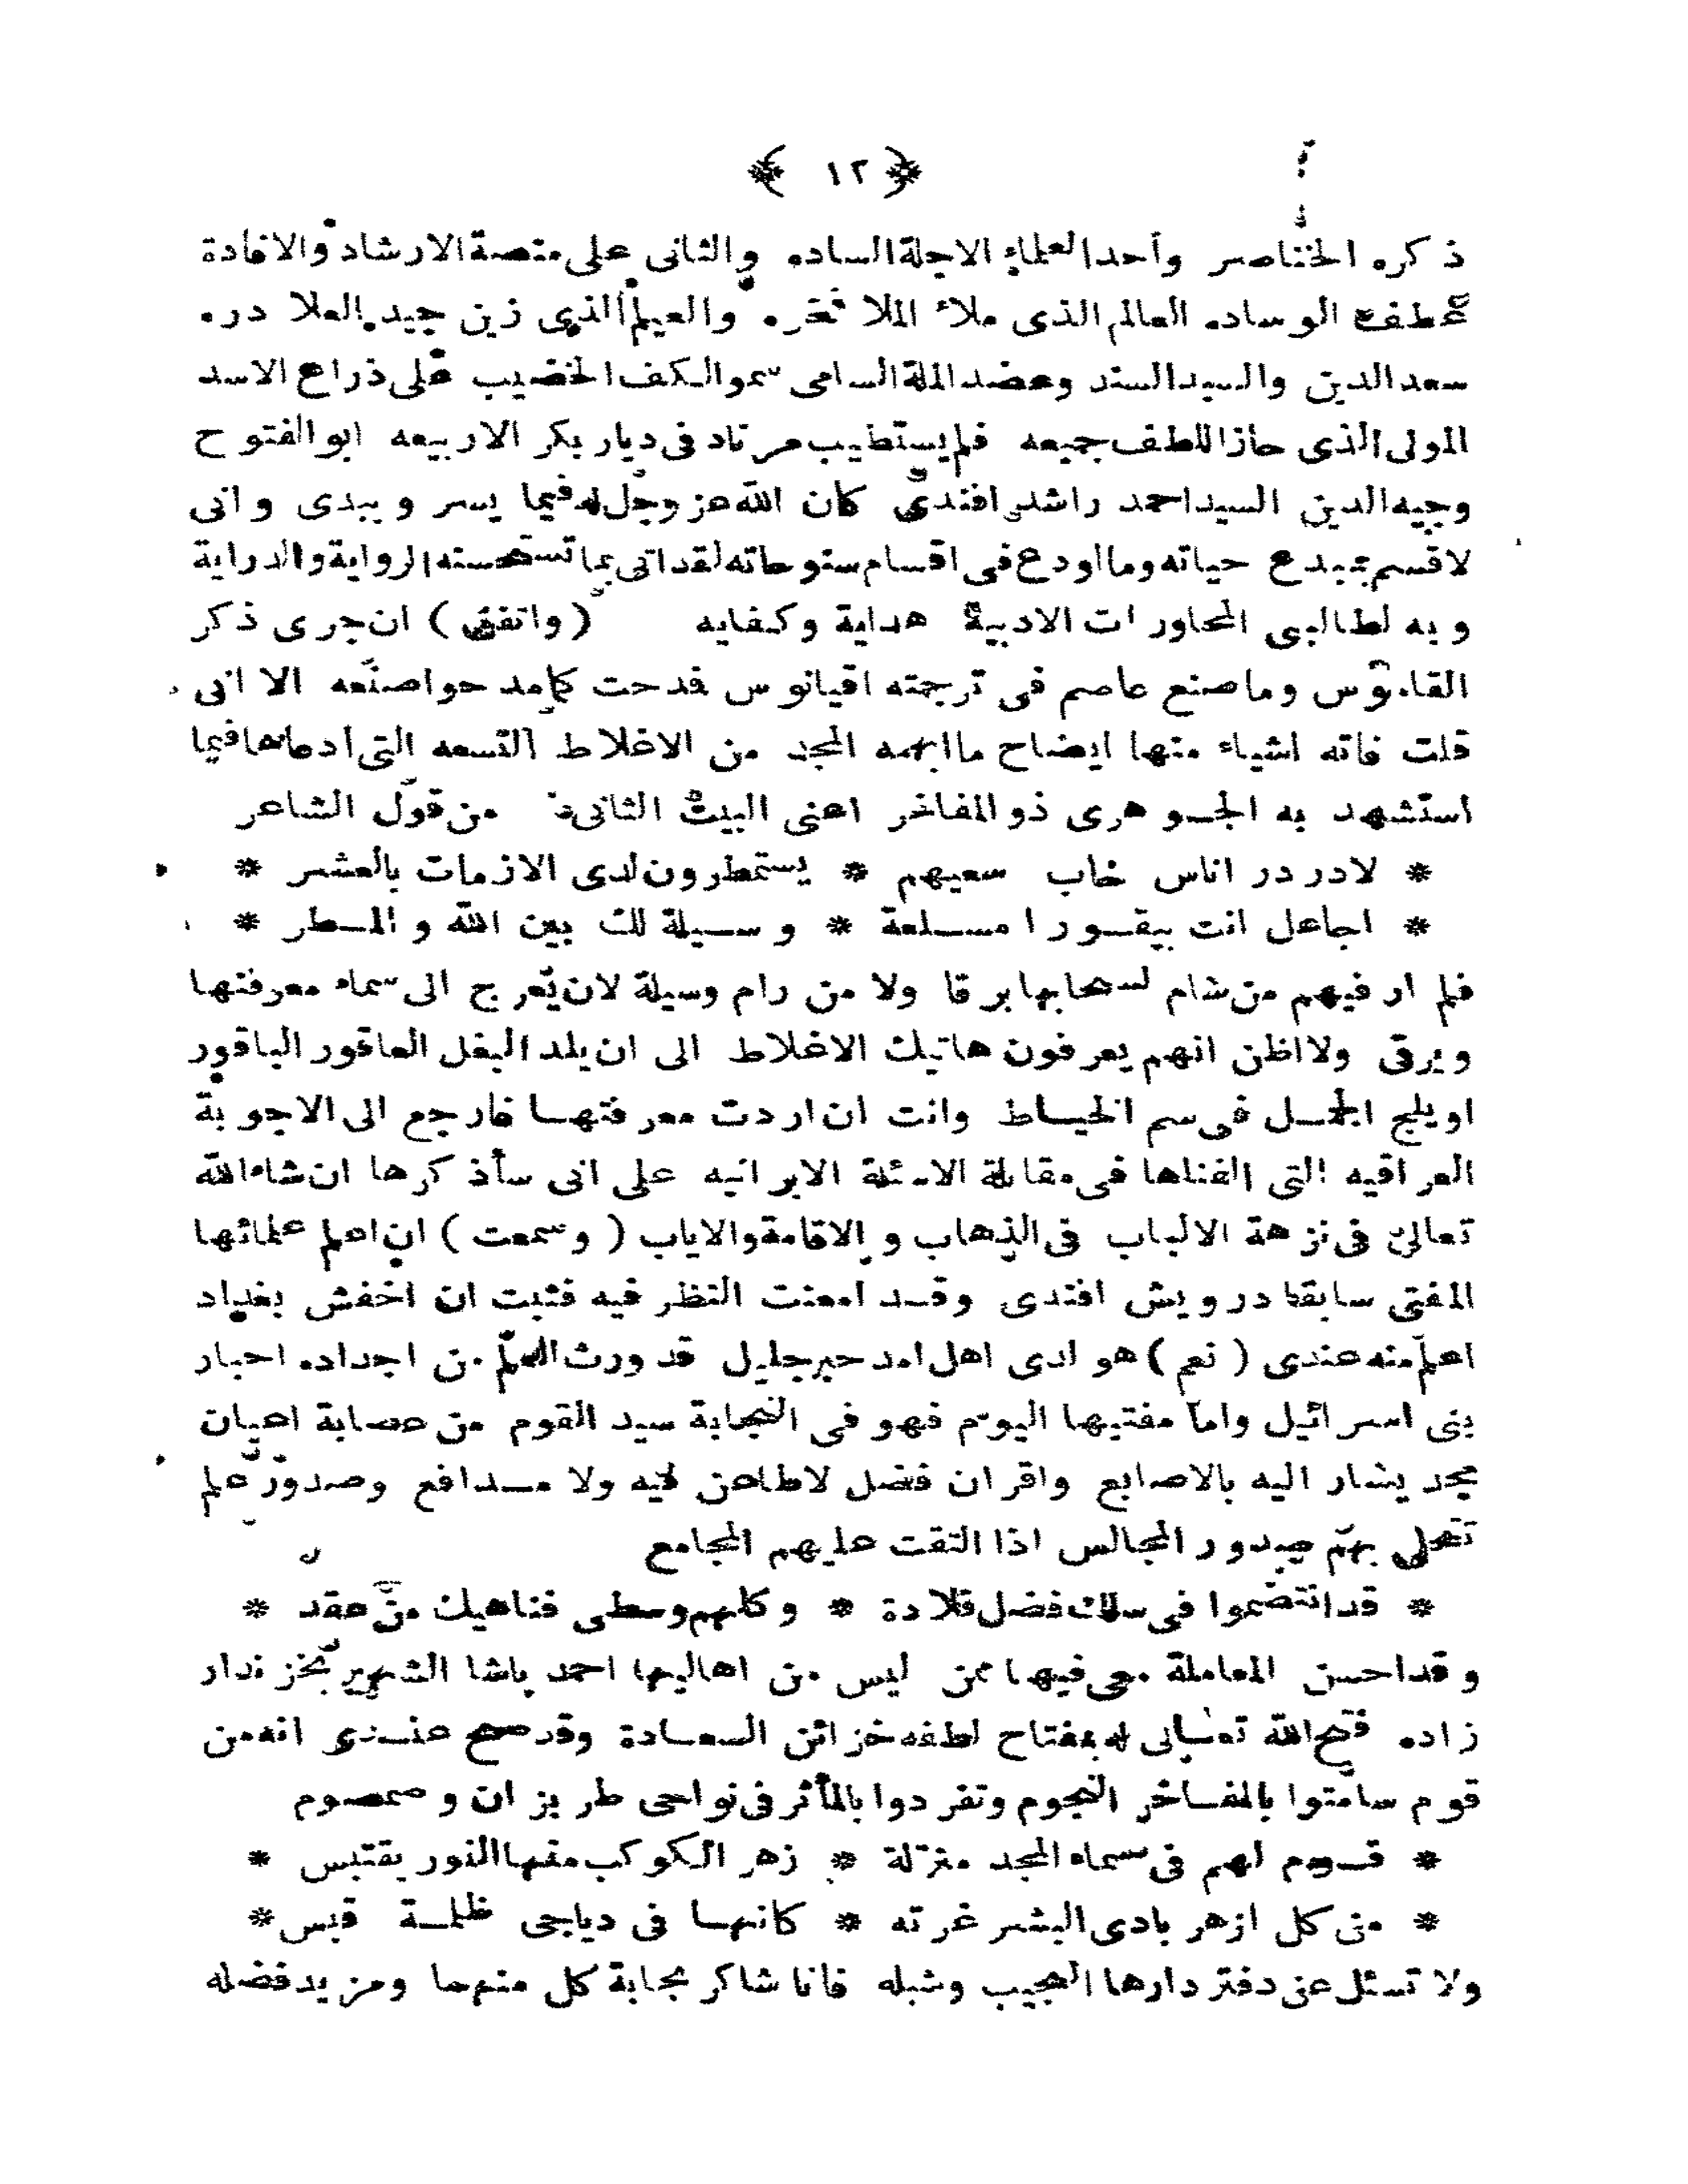 ﴿ ١٢ ﴾
ذكره الخناصر وأحد العلماء الاجلة الساده والثانى على منصة الارشاد والافادة
عطف الوساده العالم الذى ملاء الملا فخره والعيلم الذى زين جيد العلا دره
سعد الدين والسيد السند وعضد الملة السامى سمو الكف الخضيب على ذراع الاسد
المولى الذى حاز اللطف جميعه فلم يستطيب مرتاد فى ديار بكر الا ربيعه ابو الفتوح
وجيه الدين السيد احمد راشد افندى كان الله عز وجل له فيما يسر ويبدى وانى
لاقسم بمبدع حياته وما اودع فى اقسام سنوحاته لقد اتى بما تستحسنه الرواية والدراية
وبه لطالبى المحاورات الادبية هداية وكفايه ( واتفق ) ان جرى ذكر
القاموس وما صنع عاصم فى ترجمته اقيانوس فدحت كما مدحوا صنعه الا انى
قلت فاته اشياء منها ايضاح ما ابهمه المجد من الاغلاط التسعه التى ادعاها فيما
استشهد به الجوهرى ذو المفاخر اعنى البيت الثانى من قول الشاعر
* لا در در اناس خاب سعيهم * يستمطرون لدى الازمات بالعشر *
* اجاعل انت بيقورا مسلعة * وسيلة لك بين الله والمطر *
فلم ار فيهم من شام لسحابها برقا ولا من رام وسيلة لان يعرج الى سماء معرفتها
ويرقى ولا اظن انهم يعرفون هاتيك الاغلاط الى ان يلد البغل العاقور الباقور
او يلج الجمل فى سم الخياط وانت ان اردت معرفتها فارجع الى الاجوبة
العراقيه التى الفناها فى مقابلة الاسئلة الايرانيه على انى سأذكرها ان شاء الله
تعالى فى نزهة الالباب فى الذهاب والاقامة والاياب ( وسمعت ) ان اعلم علمائها
المفتى سابقا درويش افندى وقد امعنت النظر فيه فثبت ان اخفش بغداد
اعلم منه عندى ( نعم ) هو لدى اهل امد حبر جليل قد ورث العلم من اجداده احبار
بنى اسرائيل واما مفتيها اليوم فهو فى النجابة سيد القوم من عصابة اعيان
مجد يشار اليه بالاصابع واقران فضل لاطاعن فيه ولا مدافع وصدور علم
تتحلى بهم صدور المجالس اذا التقت عليهم المجامع
* قد انتضموا فى سلك فضل قلادة * وكلهم وسطى فناهيك من عقد *
وقد احسن المعاملة معى فيها ممن ليس من اهاليها احمد پاشا الشهير بخزندار
زاده فتح الله تعالى له بمفتاح لطفه خزائن السعادة وقد صح عندى انه من
قوم سامتوا بالمفاخر النجوم وتفردوا بالمأثر فى نواحى طربزان وصمصوم
* قوم لهم فى سماء المجد منزلة * زهر الكوكب منها النور يقتبس *
* من كل ازهر بادى البشر غرته * كانها فى دياجى ظلمة قبس *
ولا تسئل عن دفتردارها النجيب وشبله فانا شاكر نجابة كل منهما ومزيد فضله